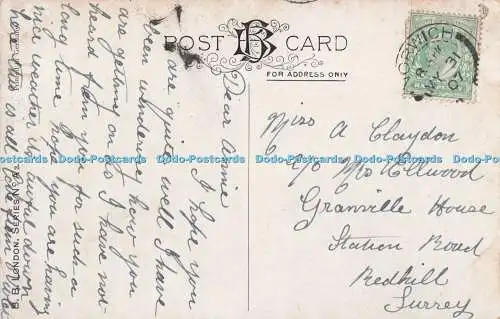 POST CARD
FOR ADDRESS ONLY
Dear Annie
I hope you
are quite well I have
been wondering how you
are getting on as I have not
heard from you for such a
long time hope you are having
nice weather its awful down
here this is all
Miss A Claydon
C/o Mrs Ellwood
Granville House
Station Road
Redhill
Surrey
NORWICH
MY 31
07
B. B. LONDON, SERIES No.
Dodo-Postcards Dodo-Postcards Dodo-Postcards Dodo-Postcards Dodo-Postcards